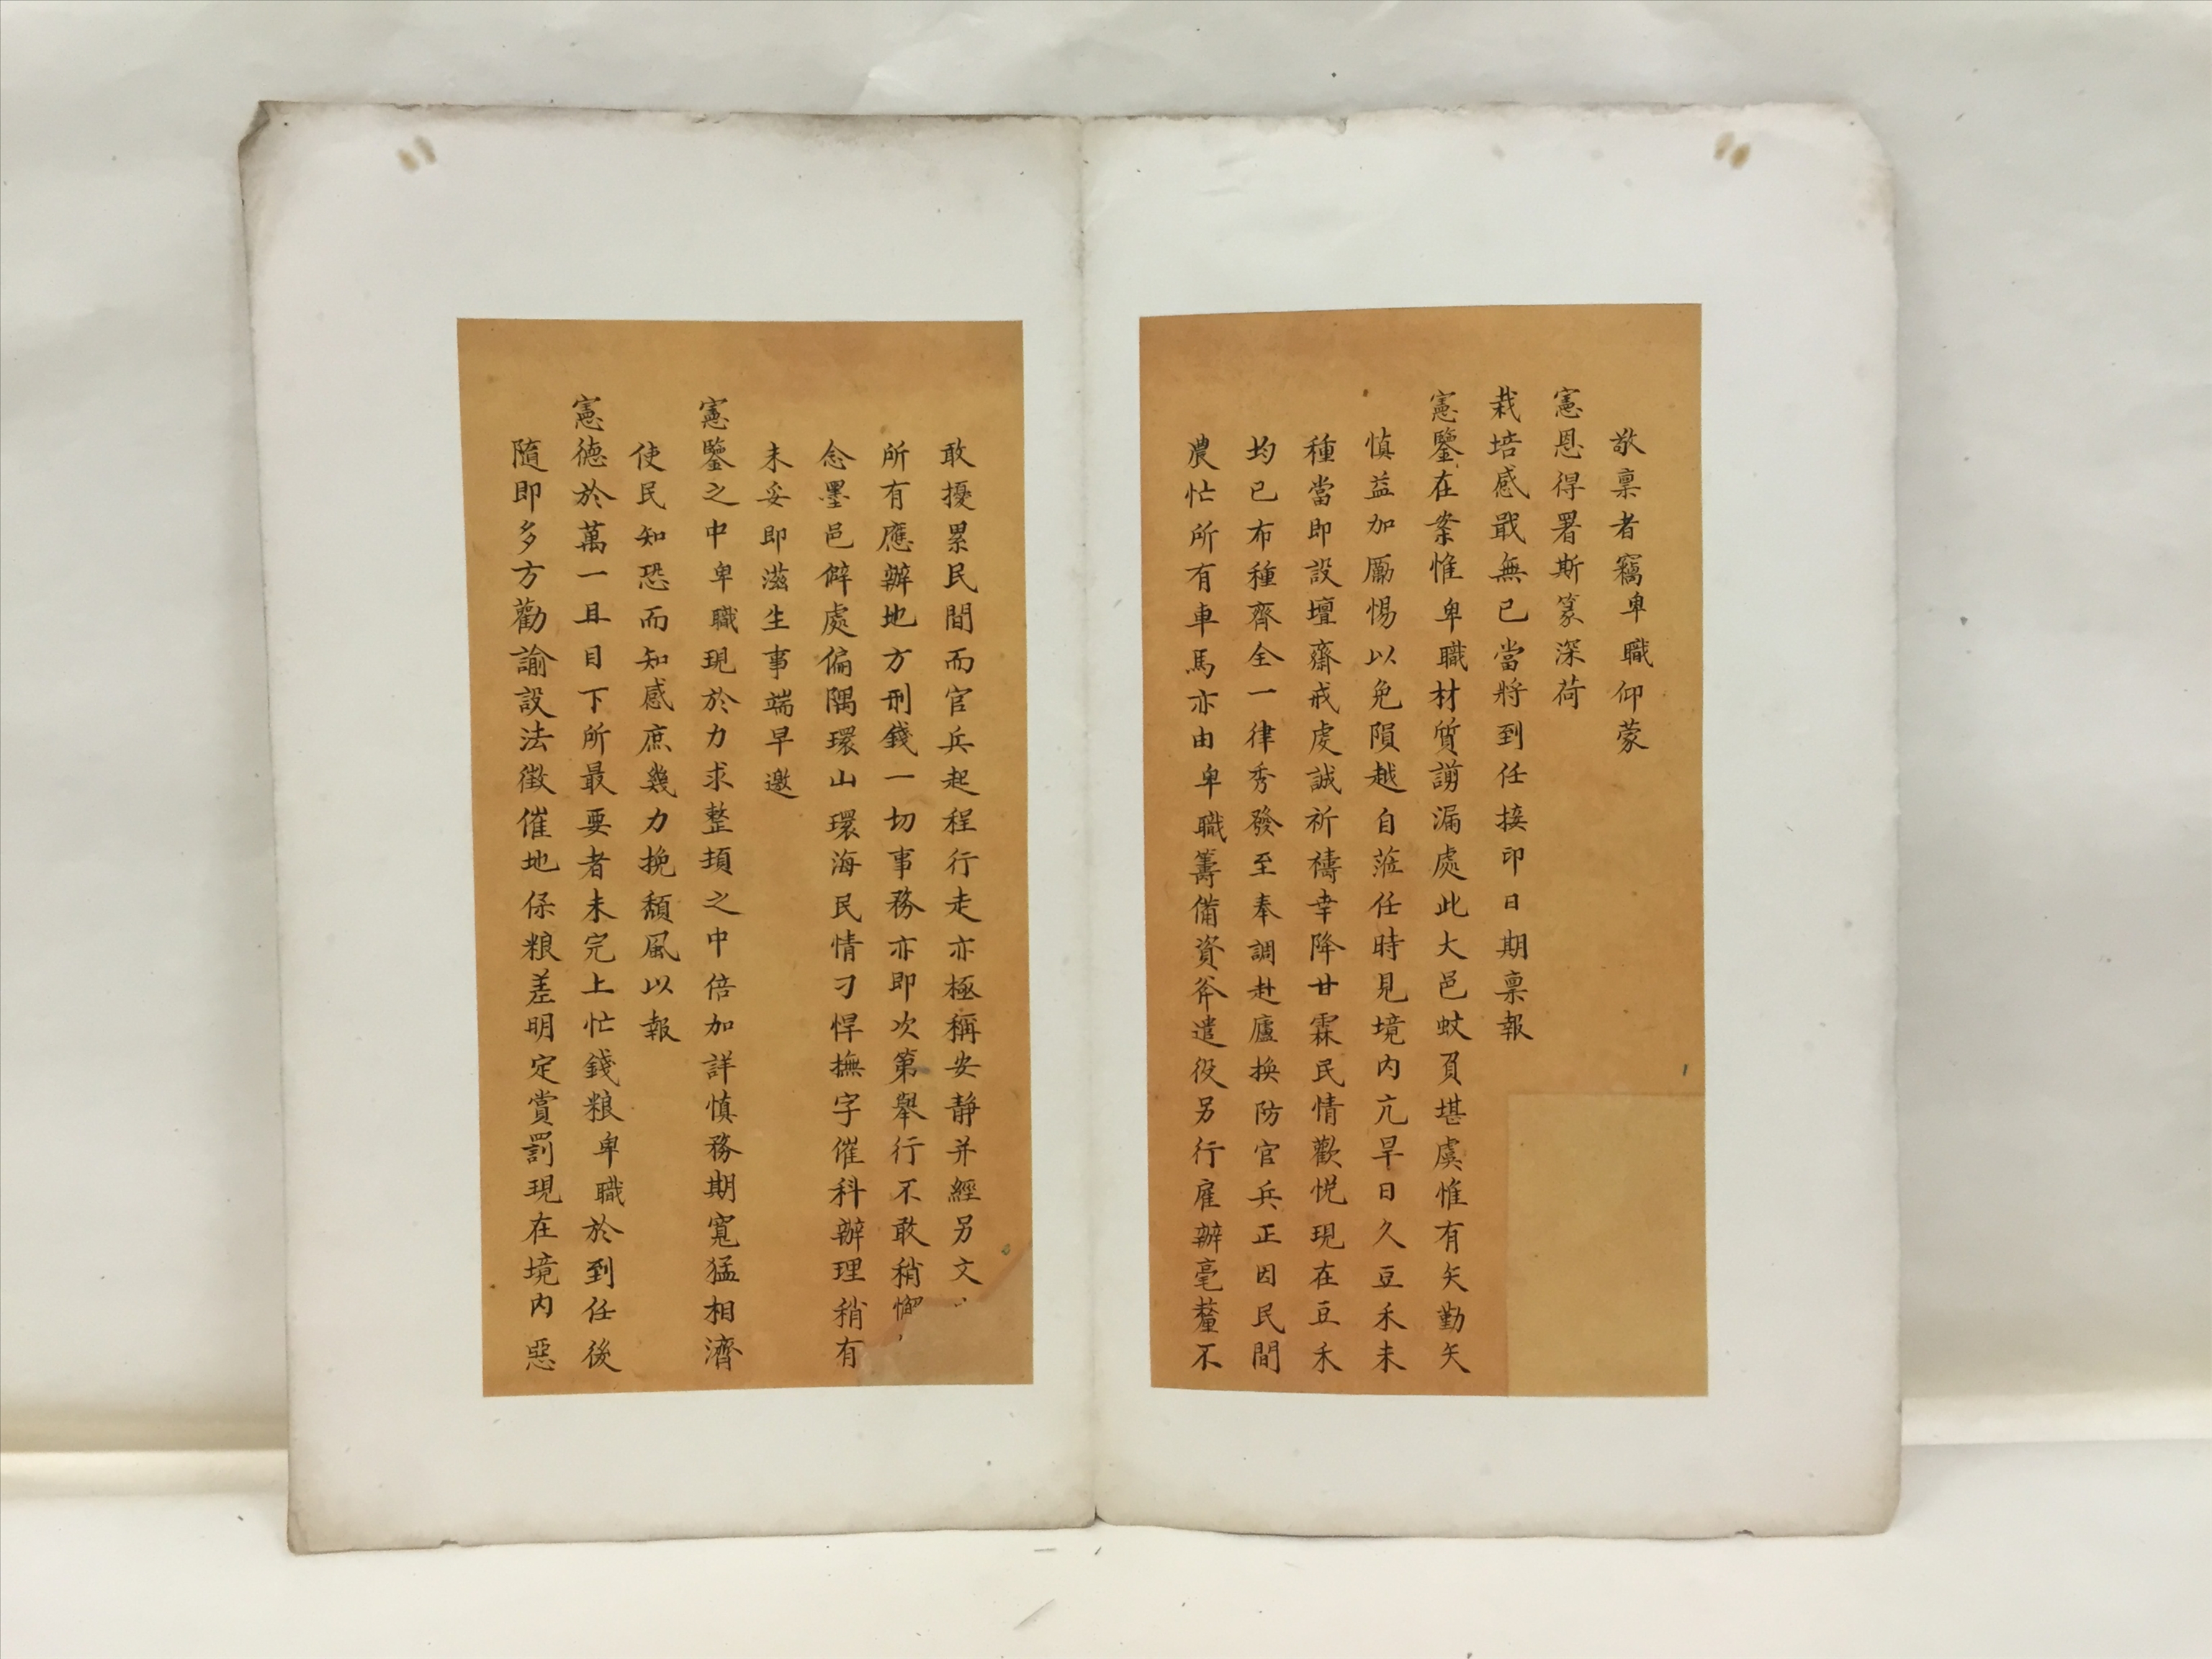 敬稟者竊卑職仰蒙
憲恩得署斯篆深荷
栽培感戢無已當將到任接印日期稟報
憲鑒在案惟卑職材質譾漏處此大邑蚊負堪虞惟有矢勤矢
慎益加勵惕以免隕越自蒞任時見境內亢旱日久豆禾未
種當即設壇齋戒虔誠祈禱幸降甘霖民情歡悅現在豆禾
均已布種齊全一律秀發至奉調赴廬換防官兵正因民間
農忙所有車馬亦由卑職籌備資斧遣役另行雇辦毫釐不
敢擾累民間而官兵起程行走亦極稱安靜并經另文
所有應辦地方刑錢一切事務亦即次第舉行不敢稍懈
念墨邑僻處偏隅環山環海民情刁悍撫字催科辦理稍有
未妥即滋生事端早邀
憲鑒之中卑職現於力求整頓之中倍加詳慎務期寬猛相濟
使民知恐而知感庶幾力挽頹風以報
憲德於萬一且目下所最要者未完上忙錢粮卑職於到任後
隨即多方勸諭設法徵催地保粮差明定賞罰現在境內惡